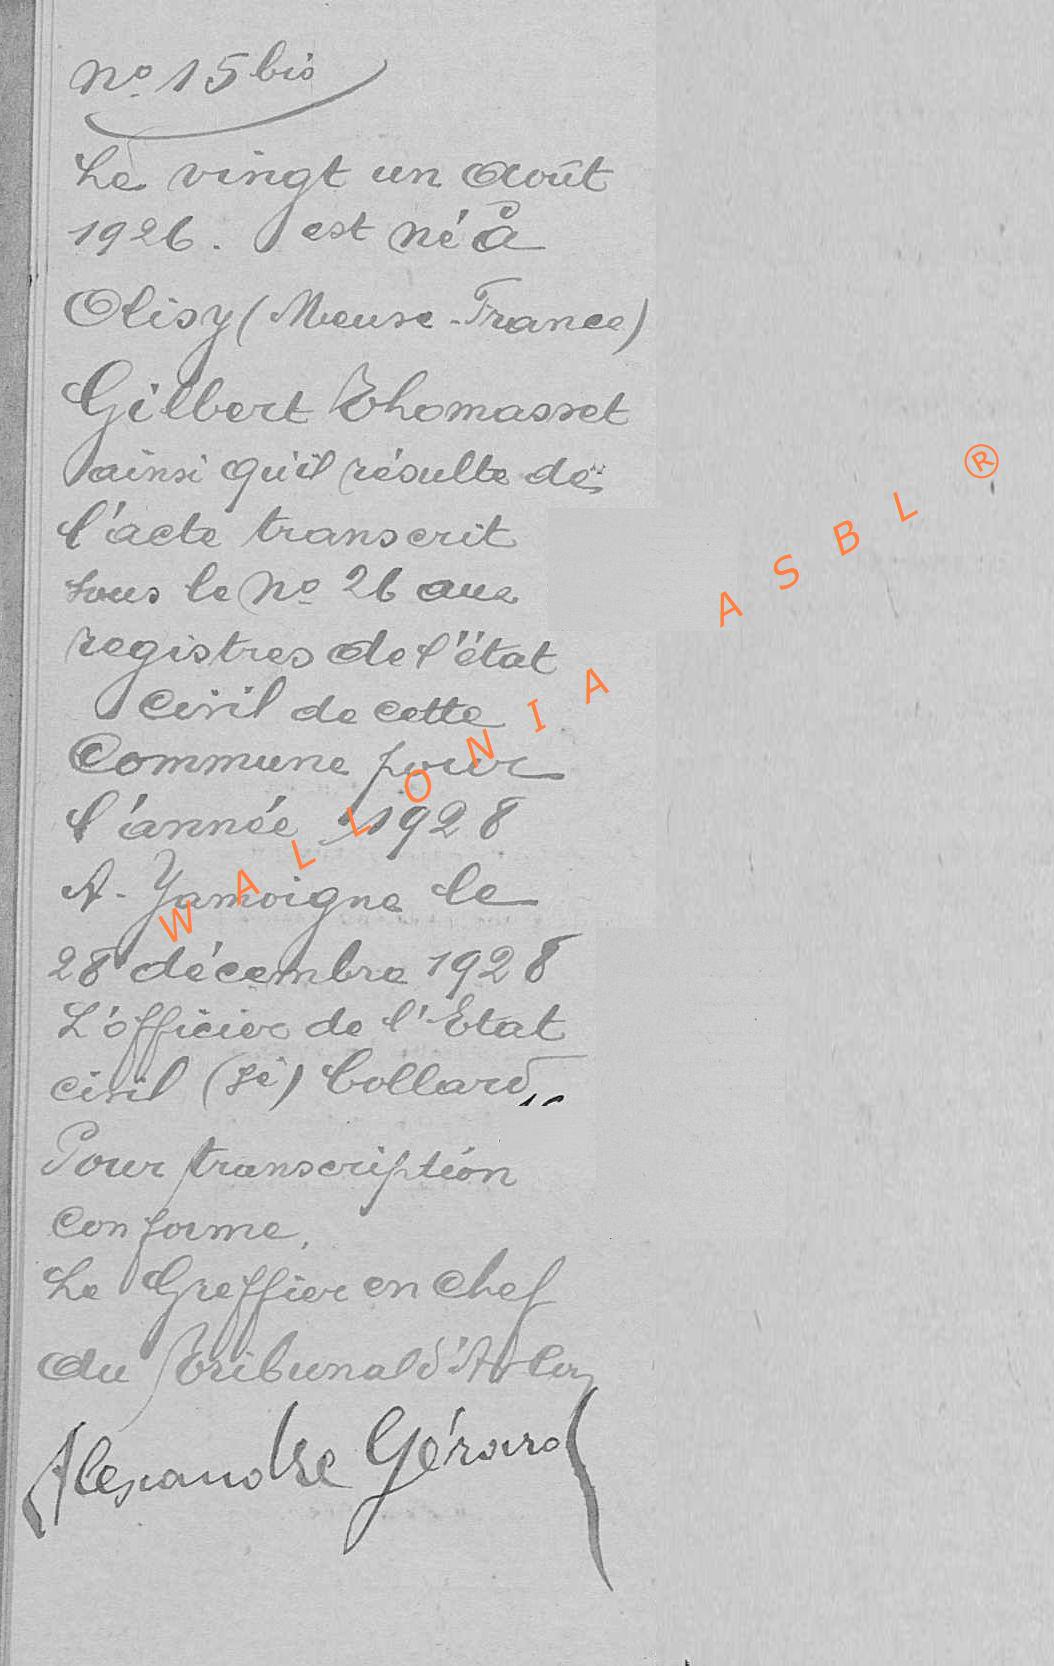 no 15 bis
Le vingt un Août
1926. est né à
Olisy (Meuse-France)
Gilbert Thomasset
ainsi qu'il résulte de
l'acte transcrit
sous le no 26 aux
registres de l'état
civil de cette
Commune pour
l'année 1928
A. Jamoigne le
28 décembre 1928
L'officier de l'Etat
civil (sé) Collard
Pour transcription
conforme,
Le Greffier en chef
du Tribunal d'Arlon
Alexandre Gérard
WALLONIA ASBL ®